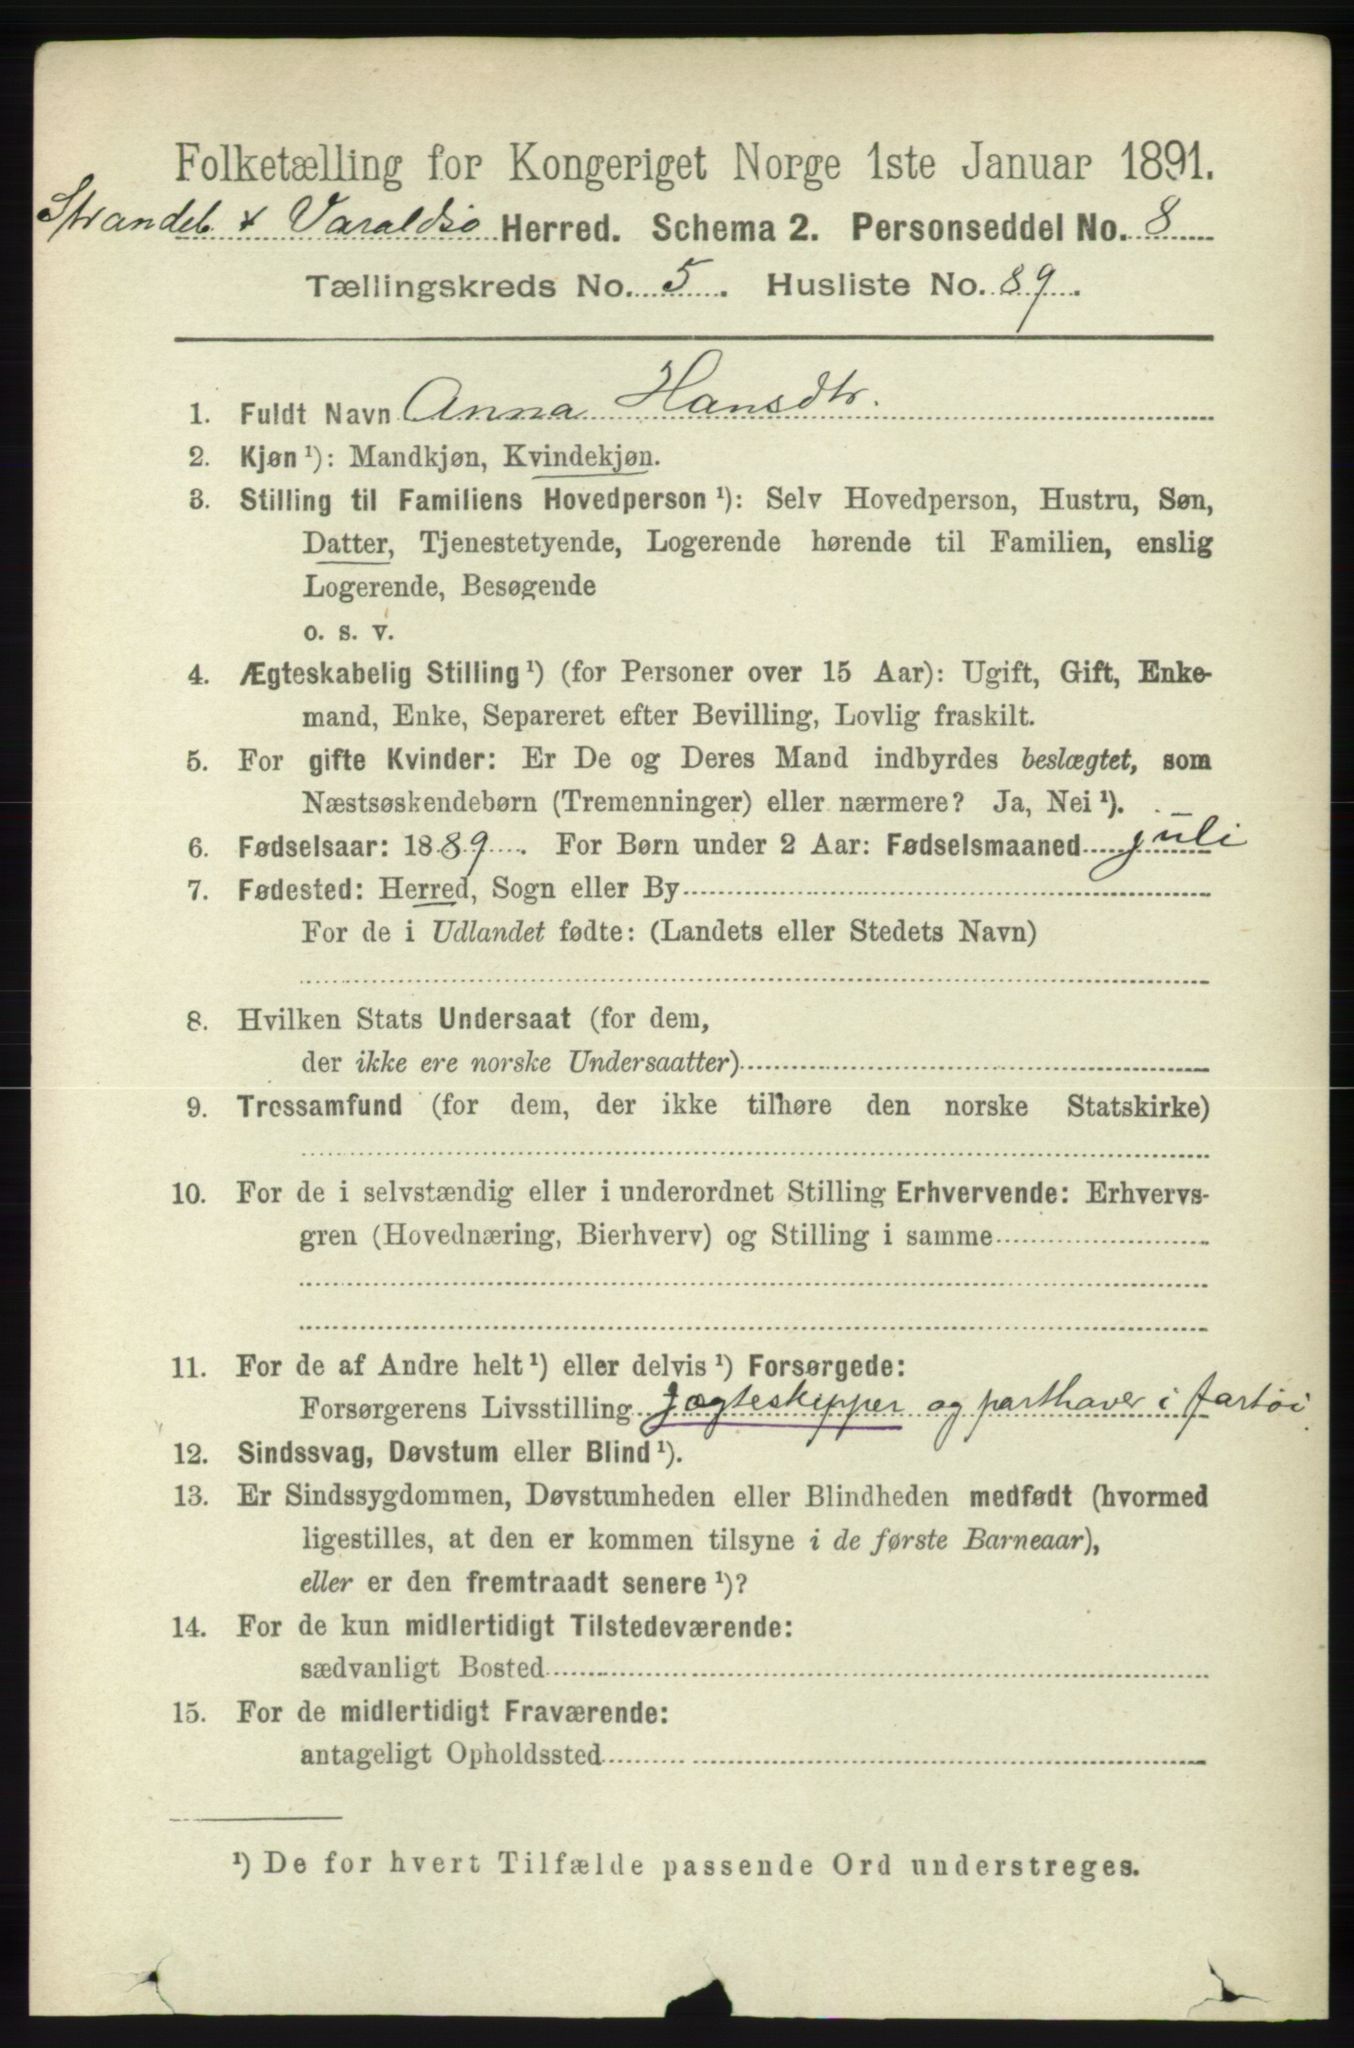 Folketælling for Kongeriget Norge 1ste Januar 1891.
Strandeb. & Varaldsø Herred. Schema 2. Personseddel No. 8
Tællingskreds No. 5. Husliste No. 89.
1. Fuldt Navn Anna Hansdtr.
2. Kjøn ¹): Mandkjøn, Kvindekjøn.
3. Stilling til Familiens Hovedperson ¹): Selv Hovedperson, Hustru, Søn,
Datter, Tjenestetyende, Logerende hørende til Familien, enslig
Logerende, Besøgende
o. s. v.
4. Ægteskabelig Stilling ¹) (for Personer over 15 Aar): Ugift, Gift, Enke-
mand, Enke, Separeret efter Bevilling, Lovlig fraskilt.
5. For gifte Kvinder: Er De og Deres Mand indbyrdes beslægtet, som
Næstsøskendebørn (Tremenninger) eller nærmere? Ja, Nei ¹).
6. Fødselsaar: 1889. For Børn under 2 Aar: Fødselsmaaned juli
7. Fødested: Herred, Sogn eller By
For de i Udlandet fødte: (Landets eller Stedets Navn)
8. Hvilken Stats Undersaat (for dem,
der ikke ere norske Undersaatter)
9. Trossamfund (for dem, der ikke tilhøre den norske Statskirke)
10. For de i selvstændig eller i underordnet Stilling Erhvervende: Erhvervs-
gren (Hovednæring, Bierhverv) og Stilling i samme
11. For de af Andre helt ¹) eller delvis ¹) Forsørgede:
Forsørgerens Livsstilling Jægteskipper og parthaver i fartøi
12. Sindssvag, Døvstum eller Blind ¹).
13. Er Sindssygdommen, Døvstumheden eller Blindheden medfødt (hvormed
ligestilles, at den er kommen tilsyne i de første Barneaar),
eller er den fremtraadt senere ¹)?
14. For de kun midlertidigt Tilstedeværende:
sædvanligt Bosted
15. For de midlertidigt Fraværende:
antageligt Opholdssted
¹) De for hvert Tilfælde passende Ord understreges.